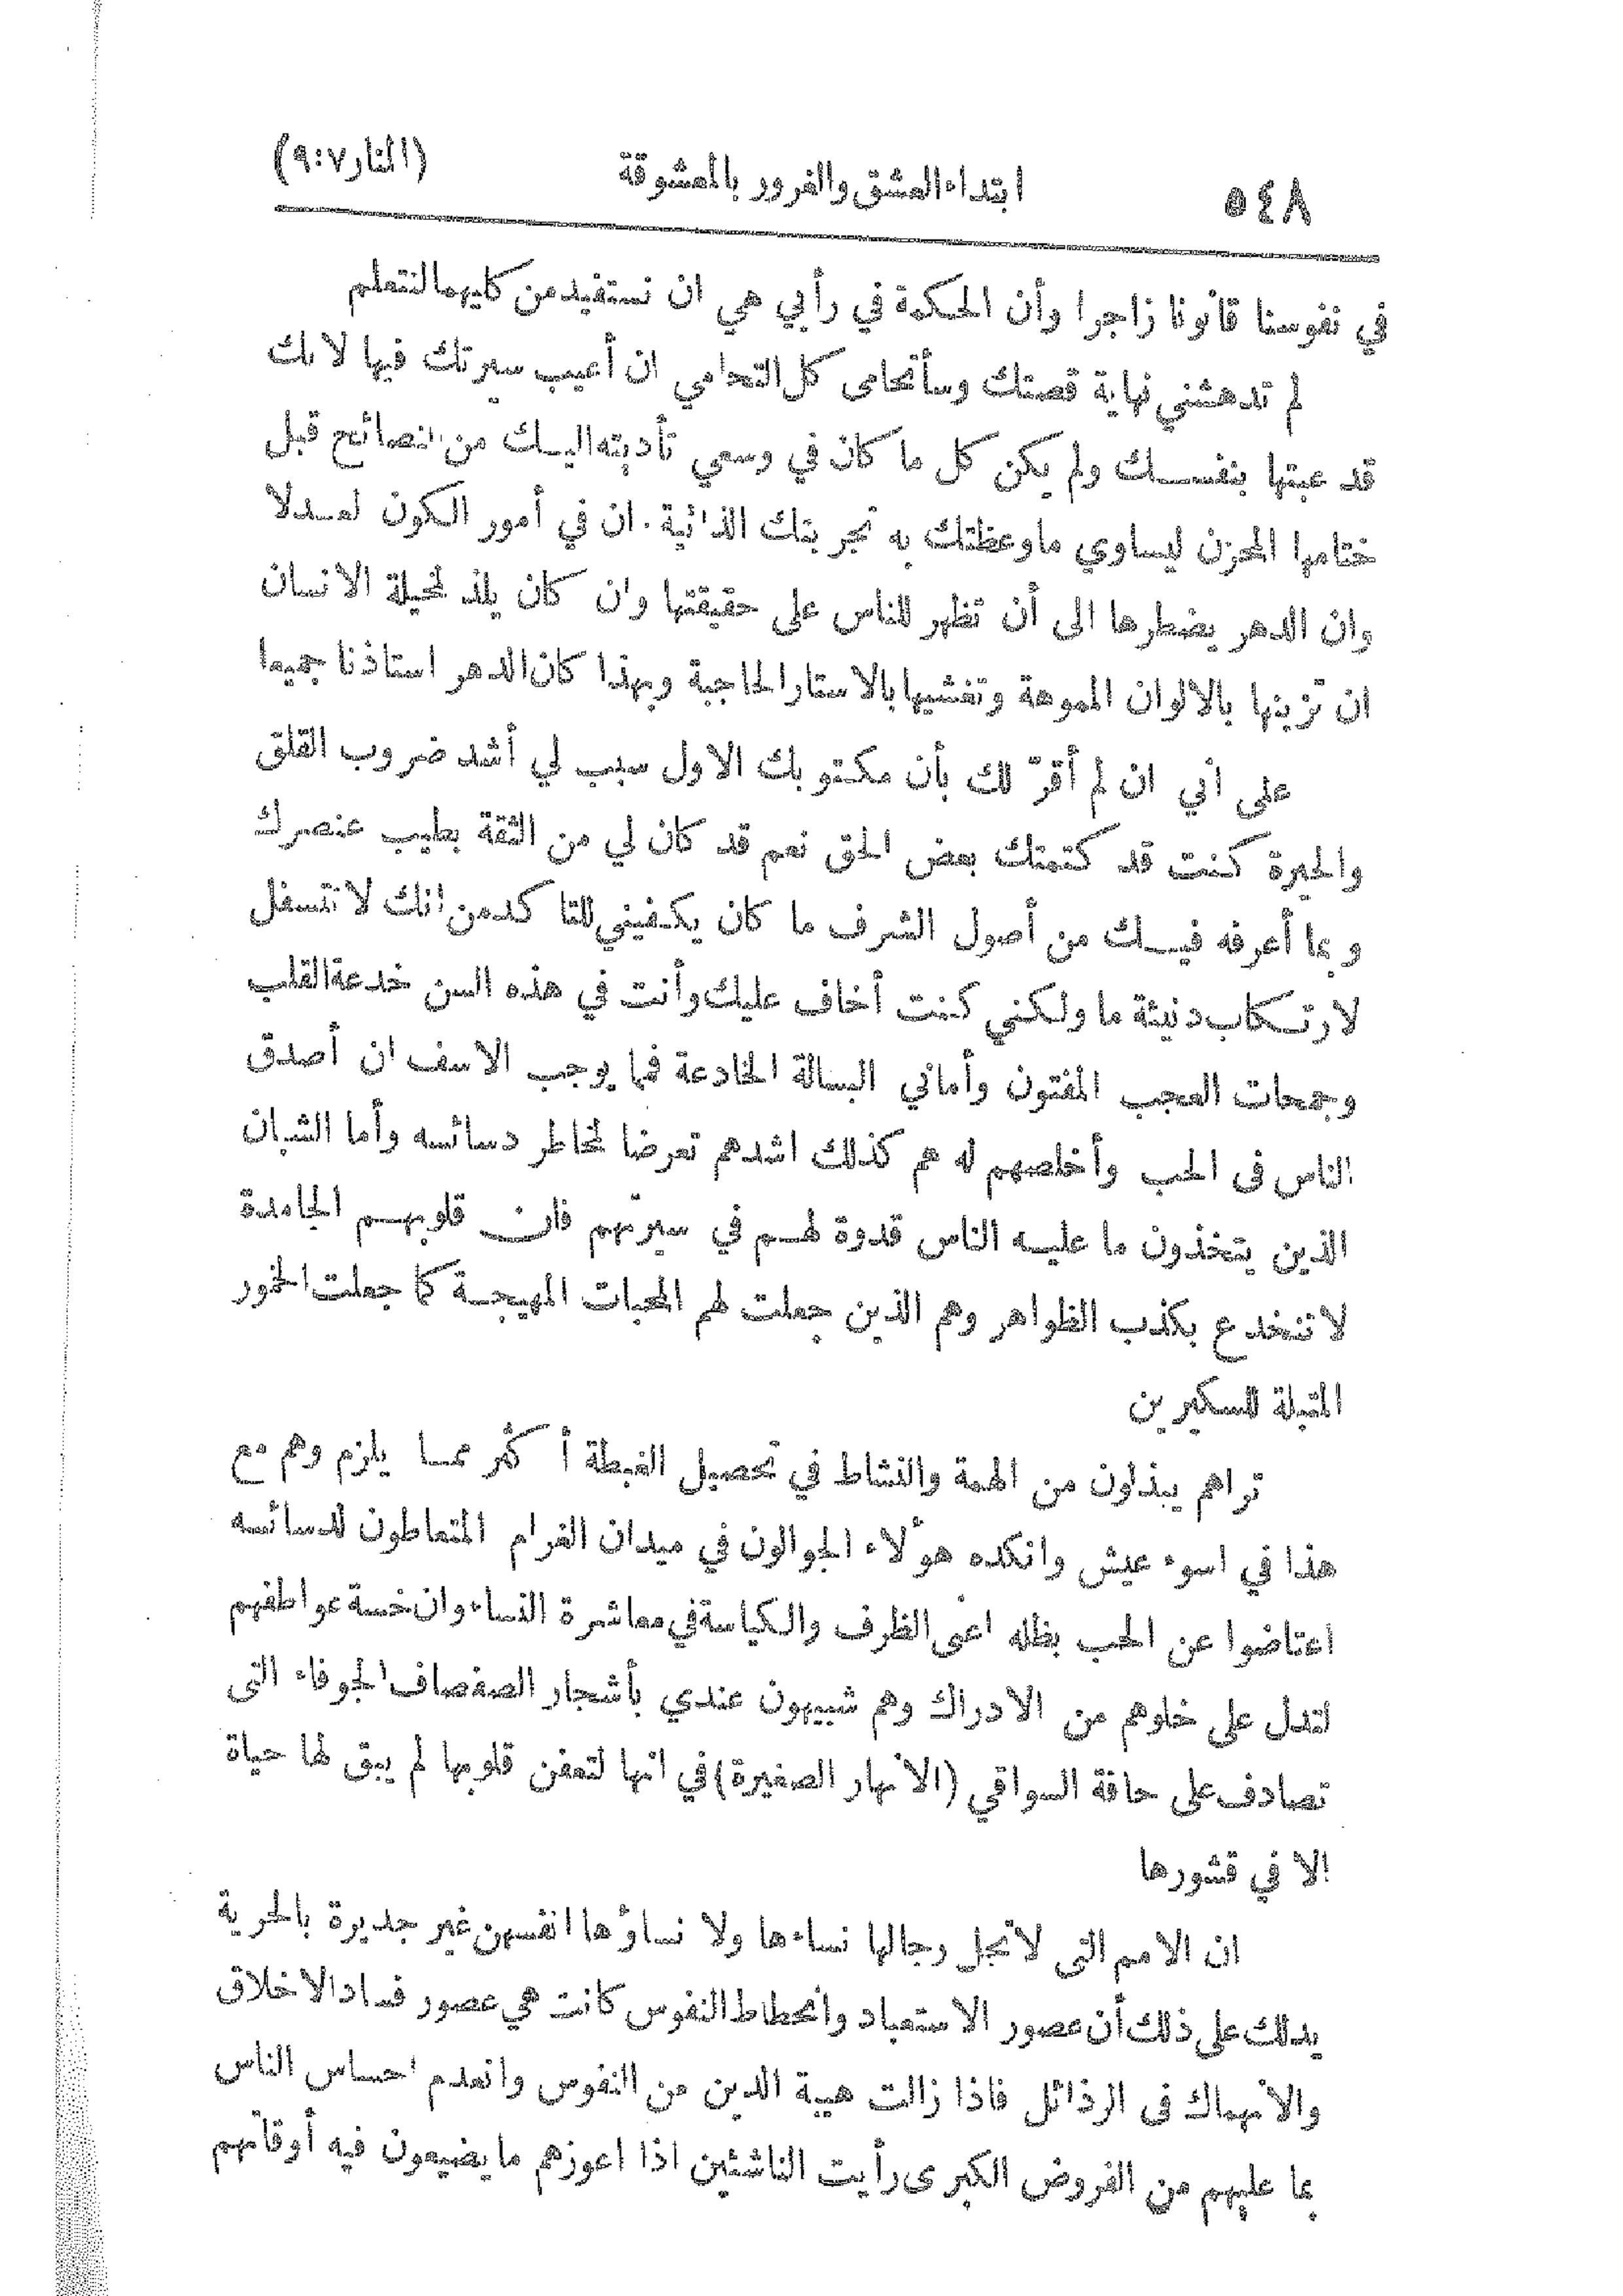 ٥٤٨
ابتداء العشق والغرور بالمعشوقة
(المنار٧:٩)
في نفوسنا قانونا زاجرا وأن الحكمة في رأيي هي ان نستفيد من كليهما لنتعلم
لم تدهشني نهاية قصتك وسأتحامى كل التحامي ان أعيب سيرتك فيها لانك
قد عبتها بنفسك ولم يكن كل ما كان في وسعي تأديته اليك من انصائح قبل
ختامها المحزن ليساوي ما وعظتك به تجربتك الذاتية . ان في أمور الكون لعدلا
وان الدهر يضطرها الى أن تظهر للناس على حقيقتها وان كان يلذ لمخيلة الانسان
ان تزينها بالالوان المموهة وتغشيها بالاستار الحاجبة وبهذا كان الدهر استاذنا جميعا
على اني ان لم أقرّ لك بأن مكتوبك الاول سبب لي أشد ضروب القلق
والحيرة كنت قد كتمتك بعض الحق نعم قد كان لي من الثقة بطيب عنصرك
وبما أعرفه فيك من أصول الشرف ما كان يكفيني للتأكد من انك لا تتسفل
لارتكاب دنيئة ما ولكني كنت أخاف عليك وأنت في هذه السن خدعة القلب
وجمحات العجب المفتون وأماني البسالة الخادعة فمما يوجب الاسف ان أصدق
الناس في الحب وأخلصهم له هم كذلك اشدهم تعرضا لمخاطر دسائسه وأما الشبان
الذين يتخذون ما عليه الناس قدوة لهم في سيرتهم فان قلوبهم الجامدة
لا تنخدع بكذب الظواهر وهم الذين جعلت لهم المحبات المهيجة كما جعلت الخمور
المتبلة للسكيرين
تراهم يبذلون من الهمة والنشاط في تحصيل الغبطة أكثر مما يلزم وهم مع
هذا في اسوء عيش وانكده هؤلاء الجوالون في ميدان الغرام المتعاطون لدسائسه
اعتاضوا عن الحب بظله اعني الظرف والكياسة في معاشرة النساء وان خسة عواطفهم
لتدل على خلوهم من الادراك وهم شبيهون عندي بأشجار الصفصاف الجوفاء التي
تصادف على حافة السواقي (الانهار الصغيرة) في انها لتعفن قلوبها لم يبق لها حياة
الا في قشورها
ان الامم التي لا تجل رجالها نساءها ولا نساؤها انفسهن غير جديرة بالحرية
يدلك على ذلك أن عصور الاستعباد وانحطاط النفوس كانت هي عصور فساد الاخلاق
والانهماك في الرذائل فاذا زالت هيبة الدين من النفوس وانعدم احساس الناس
بما عليهم من الفروض الكبرى رأيت الناشئين اذا اعوزهم ما يضيعون فيه أوقاتهم